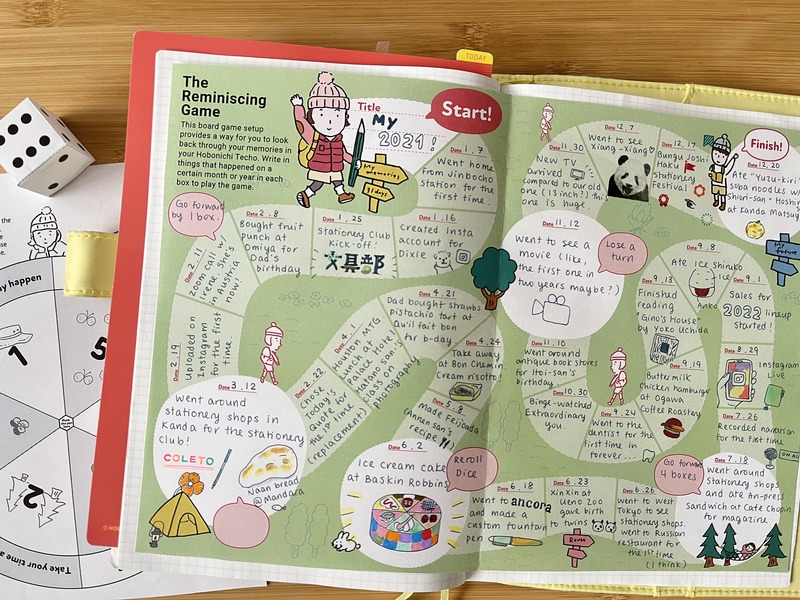 TODAY
The
Reminiscing
Game
This board game setup
provides a way for you to look
back through your memories in
your Hobonichi Techo. Write in
things that happened on a
certain month or year in each
box to play the game.
Title
My
2021!
Start!
My
memories
31 days
Date 1.7
Went home
from Jinbocho
station for the
first time.
Date 1.16
Created Insta
account for
Dixie
Date 1.25
Stationery Club
Kick-off!
文具部
Date 2.8
Bought fruit
punch at
Omiya for
Dad's
birthday
Go forward
by 1 box.
Date 2.11
Zoom call w/
Irene. She's
in Austria
now!
Date 2.19
Uploaded on
Instagram
for the first
time
Date 3.12
Went around
stationery shops in
Kanda for the stationery
club!
COLETO
Naan bread
@Mandara
Date 2.22
Chose
Today's
Quote for
the 1st time
(replacement)
Date 4.1
MTG
Lunch at
Palace Hotel
class on
photography
Date 4.21
Dad bought strawbs
pistachio tart at
Qu'il fait bon
for b-day.
Date 4.24
Take away
at Bon Chemin
Cream risotto!
Made Feijoada
(Annen san's
recipe)
Date 6.2
Ice cream cake
at Baskin Robbins
Reroll
Dice
Date 6.18
Went to ancora
and made a
custom fountain
pen
Date 6.23
XinXin at
Ueno Zoo
gave birth
to twins
Route
Date 6.26
Went to West
Tokyo to see
stationery shops.
Went to Russian
restaurant for
the 1st time
(I think)
Go forward
4 boxes
Date 7.18
Went around
Stationery shops
and ate An-press
Sandwich at Cafe Chopin
for magazine
Date 7.26
Recorded narration
for the first time.
Date 8.29
Instagram
Live
Date 9.1
Sales for
2022 lineup
started!
Date 9.8
Ate ice Shiruko
Anko
Date 9.13
Finished
reading
"Gino's House"
by Yoko Uchida
Date 9.19
Buttermilk
chicken hamburger
at Ogawa
Coffee Roastery
Date 9.24
Went to the
dentist for the
first time in
forever...
Date 10.30
Binge-watched
Extraordinary
You.
Date 11.10
Went around
antique book stores
for Itoi-san's
birthday.
Date 11.12
Went to see a
movie (like,
the first one in
two years maybe?)
Lose a
turn
Date 11.30
New TV
arrived
compared to our old
one (13 inch?) this
one is huge.
Date 12.7
Went to see
Xiang-Xiang
Date 12.17
Gungu Joshi
Haku
stationery
Festival
Date 12.20
Ate "Yuzu-kiri"
soba noodles w/
Shiori-san + Hoshi
at Kanda Matsuya
Finish!
1
5
2
Take your time